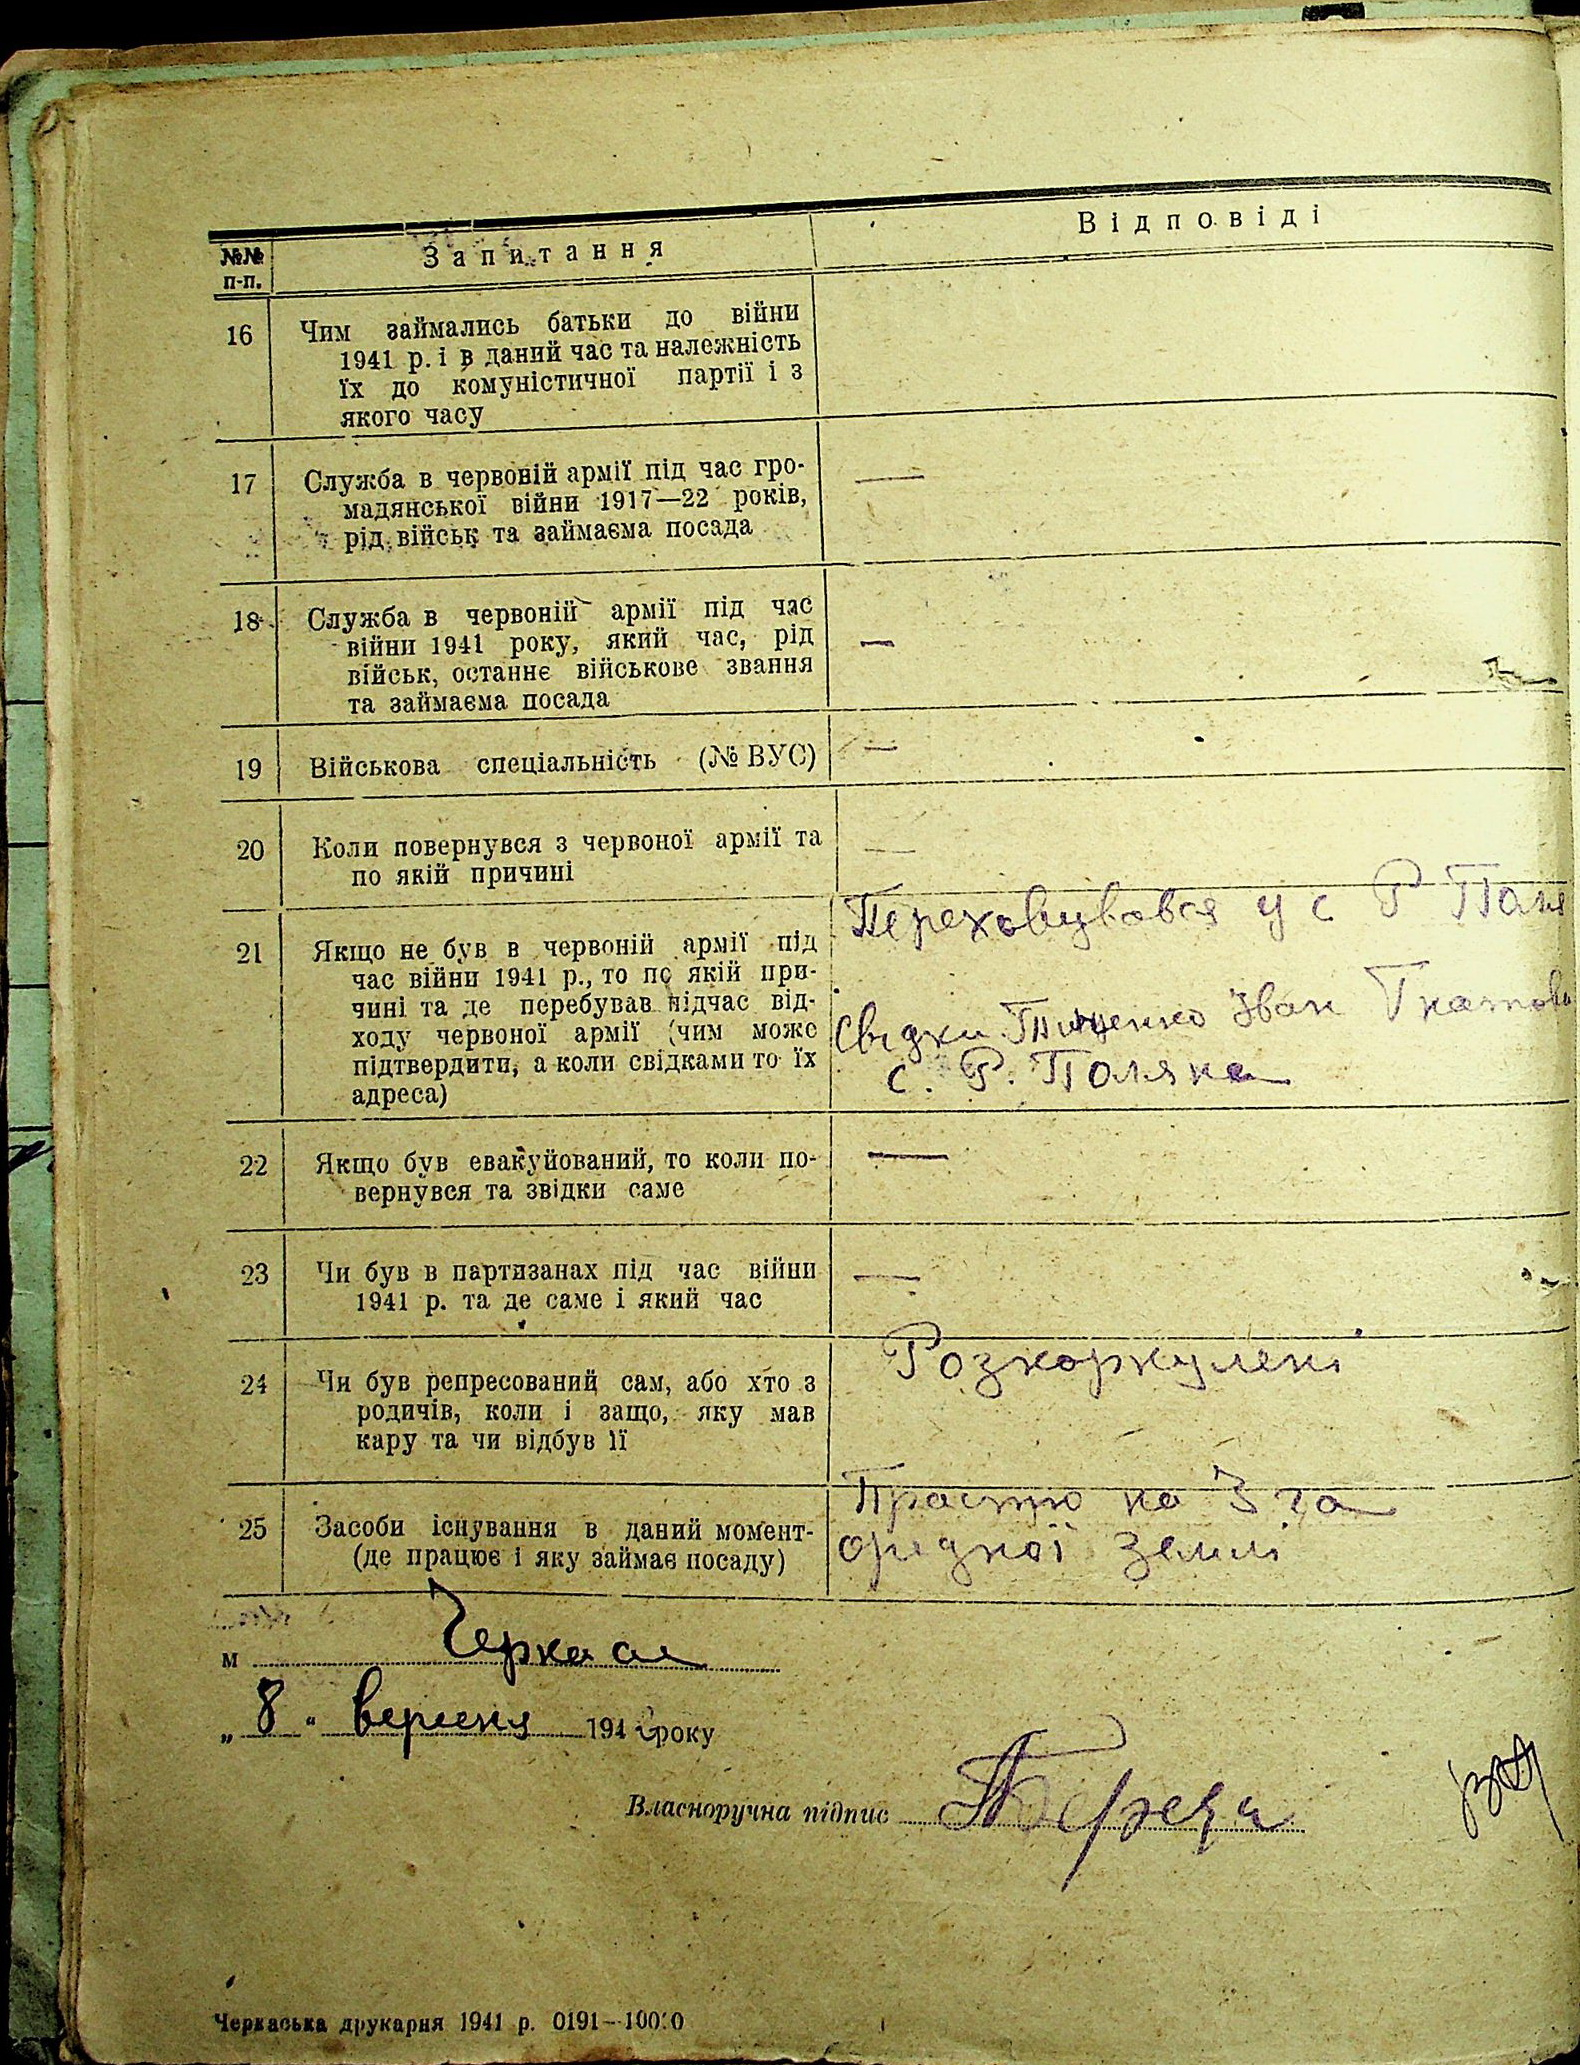 №№ п-п.
Запитання
Відповіді
16
Чим займались батьки до війни
1941 р. і в даний час та належність
їх до комуністичної партії і з
якого часу
17
Служба в червоній армії під час гро-
мадянської війни 1917—22 років,
рід військ та займаєма посада
—
18
Служба в червоній армії під час
війни 1941 року, який час, рід
військ, останнє військове звання
та займаєма посада
—
19
Військова спеціальність (№ ВУС)
—
20
Коли повернувся з червоної армії та
по якій причині
—
21
Якщо не був в червоній армії під
час війни 1941 р., то по якій при-
чині та де перебував підчас від-
ходу червоної армії (чим може
підтвердити, а коли свідками то їх
адреса)
Переховувався у с Р Поля
Свідки Тищенко Іван Гнатови
с. Р. Поляна
22
Якщо був евакуйований, то коли по-
вернувся та звідки саме
—
23
Чи був в партизанах під час війни
1941 р. та де саме і який час
—
24
Чи був репресований сам, або хто з
родичів, коли і защо, яку мав
кару та чи відбув її
Розкоркулені
25
Засоби існування в даний момент-
(де працює і яку займає посаду)
на 3 га
оридної землі
м Черкаси
„8“ вересня 194 року
Власноручна підпис
Черкаська друкарня 1941 р. 0191—10000